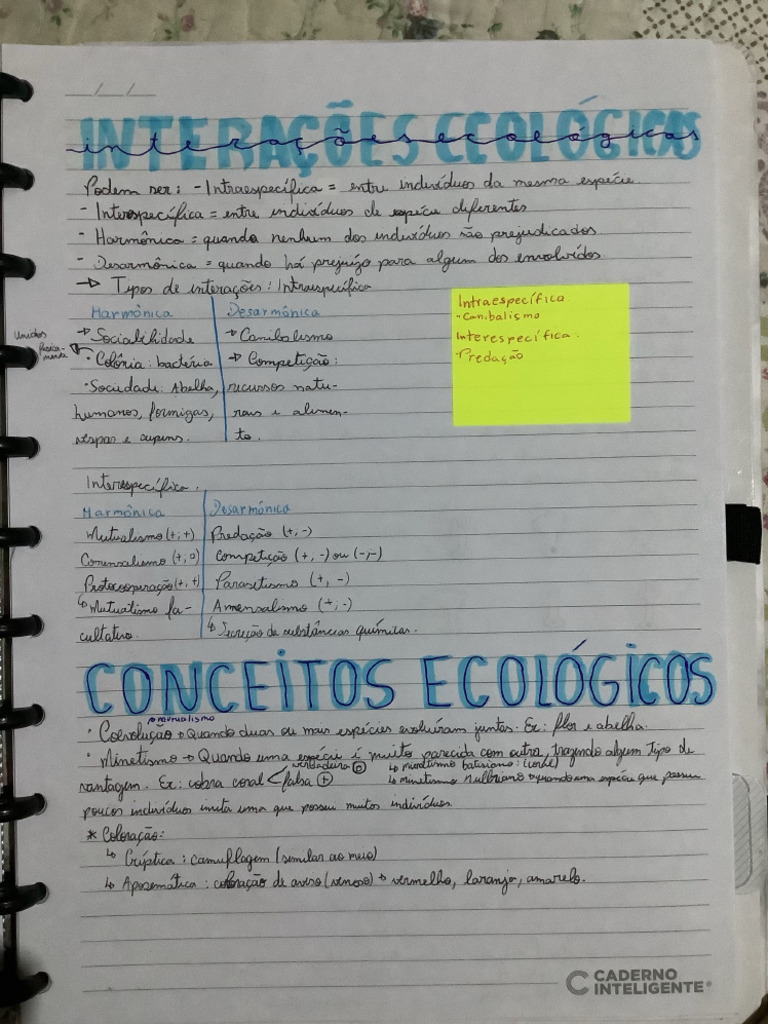 __/__/__
INTERAÇÕES ECOLÓGICAS
interações ecológicas
Podem ser: - Intraespecífica = entre indivíduos da mesma espécie.
- Interespecífica = entre indivíduos de espécie diferentes
- Harmônica = quando nenhum dos indivíduos são prejudicados.
- Desarmônica = quando há prejuízo para algum dos envolvidos.
→ Tipos de interações: Intraespecífica
Harmônica
→ Sociabilidade
Unidos
fisicamente
• Colônia: bactéria
• Sociedade: Abelha,
humanos, formigas,
vespas e cupins.
Desarmônica
→ Canibalismo
→ Competição:
recursos natu-
rais e alimen-
to.
Intraespecífica
- Canibalismo
Interespecífica.
- Predação
Interespecífica.
Harmônica
Mutualismo (+, +)
Comensalismo (+, 0)
Protocooperação (+, +)
↳ Mutualismo fa-
cultativo.
Desarmônica
Predação (+, -)
Competição (+, -) ou (-, -)
Parasitismo (+, -)
Amensalismo (+, -)
↳ Secreção de substâncias químicas.
CONCEITOS ECOLÓGICOS
• Coevolução → Quando duas ou mais espécies evoluíram juntas. Ex: flor e abelha.
• Mimetismo → Quando uma espécie é muito parecida com outra, trazendo algum tipo de
vantagem. Ex: cobra coral < verdadeira falsa (+)
↳ mimetismo batesiano:
↳ mimetismo mulleriano → quando uma espécie que possui
poucos indivíduos imita uma que possui muitos indivíduos.
* Coloração:
↳ Críptica: camuflagem (similar ao meio)
↳ Aposemática: coloração de aviso (venoso) → vermelho, laranja, amarelo.
CADERNO
INTELIGENTE®